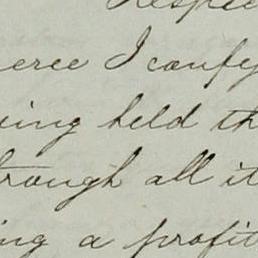 Respec
eree I caufy
ing held th
rough all it
ing a profit